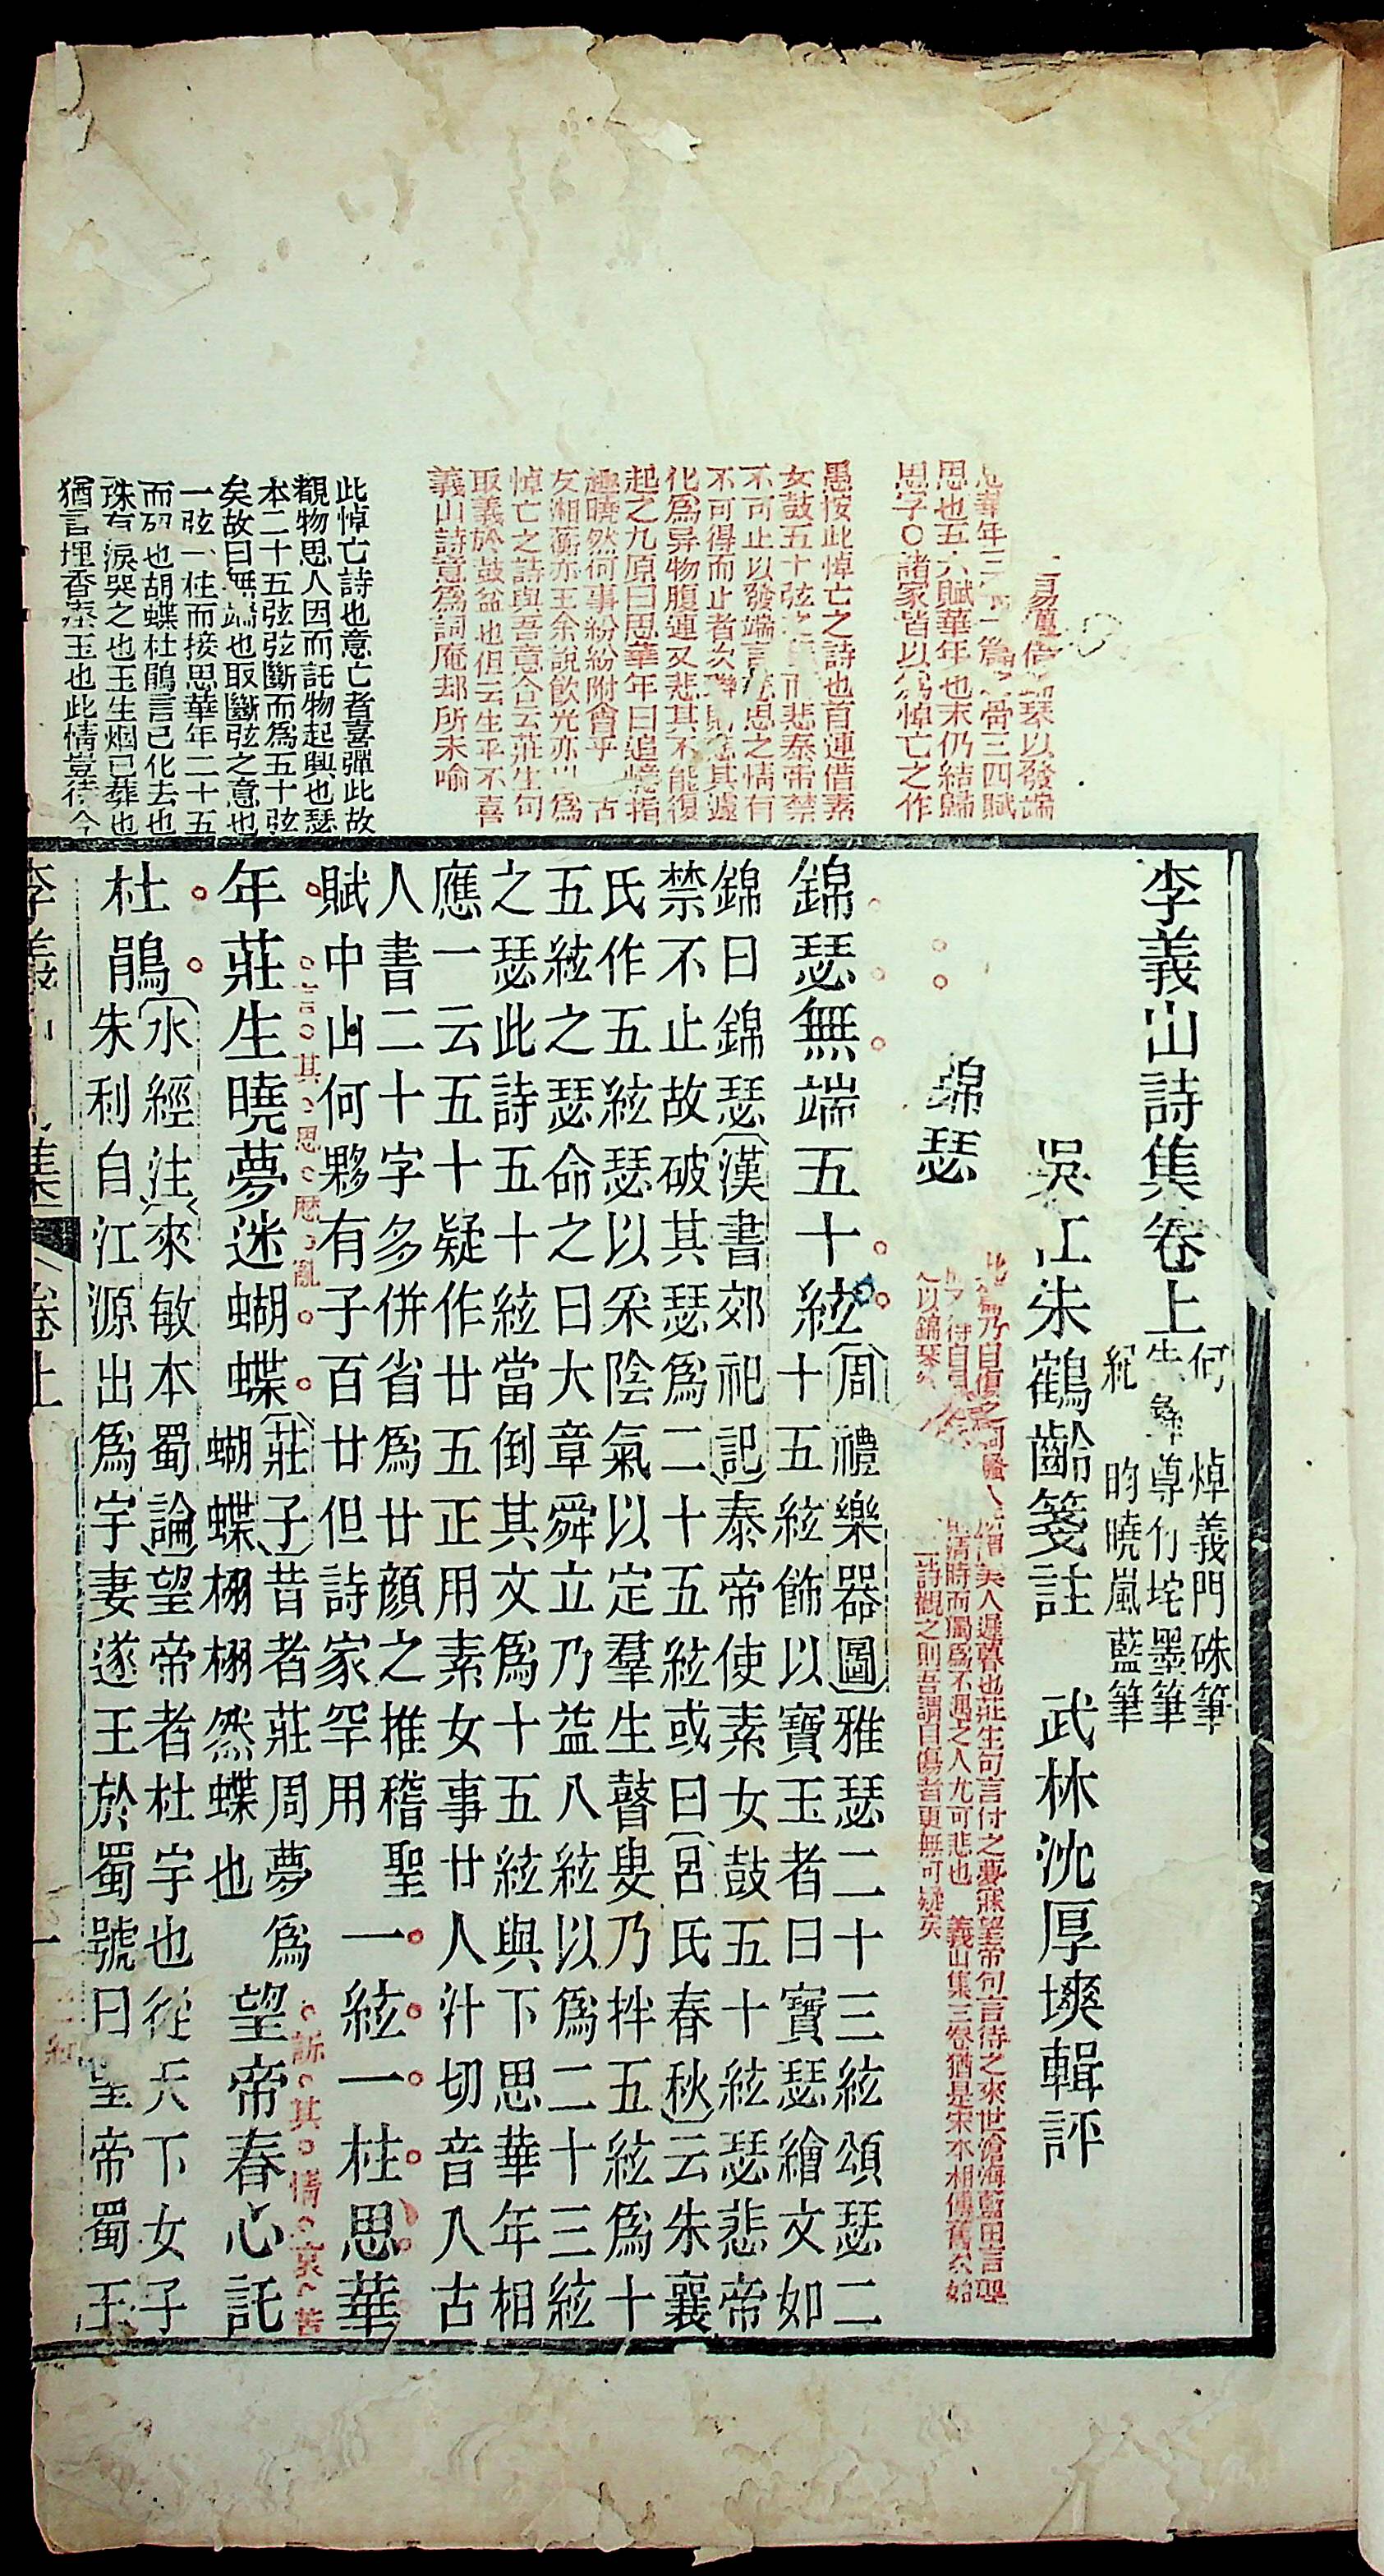 李義山詩集卷上
何　焯義門硃筆
朱彝尊竹垞墨筆
紀　昀曉嵐藍筆
吳江朱鶴齡箋註　武林沈厚塽輯評
錦瑟
錦瑟無端五十絃
周禮樂器圖雅瑟二十三絃頌瑟二
十五絃飾以寶玉者曰寶瑟繪文如
錦曰錦瑟漢書郊祀記泰帝使素女鼓五十絃瑟悲帝
禁不止故破其瑟爲二十五絃或曰呂氏春秋云朱襄
氏作五絃瑟以采陰氣以定羣生瞽叟乃拌五絃爲十
五絃之瑟命之曰大章舜立乃益八絃以爲二十三絃
之瑟此詩五十絃當倒其文爲十五絃與下思華年相
應一云五十疑作廿五正用素女事廿人汁切音入古
人書二十字多併省爲廿顏之推稽聖
賦中山何夥有子百廿但詩家罕用
一絃一柱思華
年莊生曉夢迷蝴蝶
莊子昔者莊周夢爲
蝴蝶栩栩然蝶也
望帝春心託
杜鵑
水經注來敏本蜀論望帝者杜宇也從天下女子
朱利自江源出爲宇妻遂王於蜀號曰望帝蜀王
思也五六賦華年也末仍結歸
思字〇諸家皆以爲悼亡之作
愚按此悼亡之詩也首連借素
女鼓五十弦之而悲泰帝禁
不可止以發端言悲思之情有
不可得而止者次聯則悲其遽
化爲异物腹連又悲其不能復
起之九原曰思華年曰追憶指
趣曉然何事紛紛附會乎　古
友湘蘅亦主余說飲光亦以爲
悼亡之詩與吾意合云莊生句
取義於鼓盆也但云生平不喜
義山詩意爲詞庵却所未喻
此悼亡詩也意亡者喜彈此故
覩物思人因而託物起興也瑟
本二十五弦弦斷而爲五十弦
矣故曰無端也取斷弦之意也
一弦一柱而接思華年二十五
而殁也胡蝶杜鵑言已化去也
珠有淚哭之也玉生烟已葬也
猶言埋香瘞玉也此情豈待今
言其思歷亂
訴其情哀苦
美人遲暮也莊生句言付之夢寐望帝句言待之來世滄海藍田言埋
清時而獨爲不遇之人尤可悲也　義山集三卷猶是宋本相傳舊次始
之以錦瑟
詩觀之則吾謂自傷者更無可疑矣
卷上
一